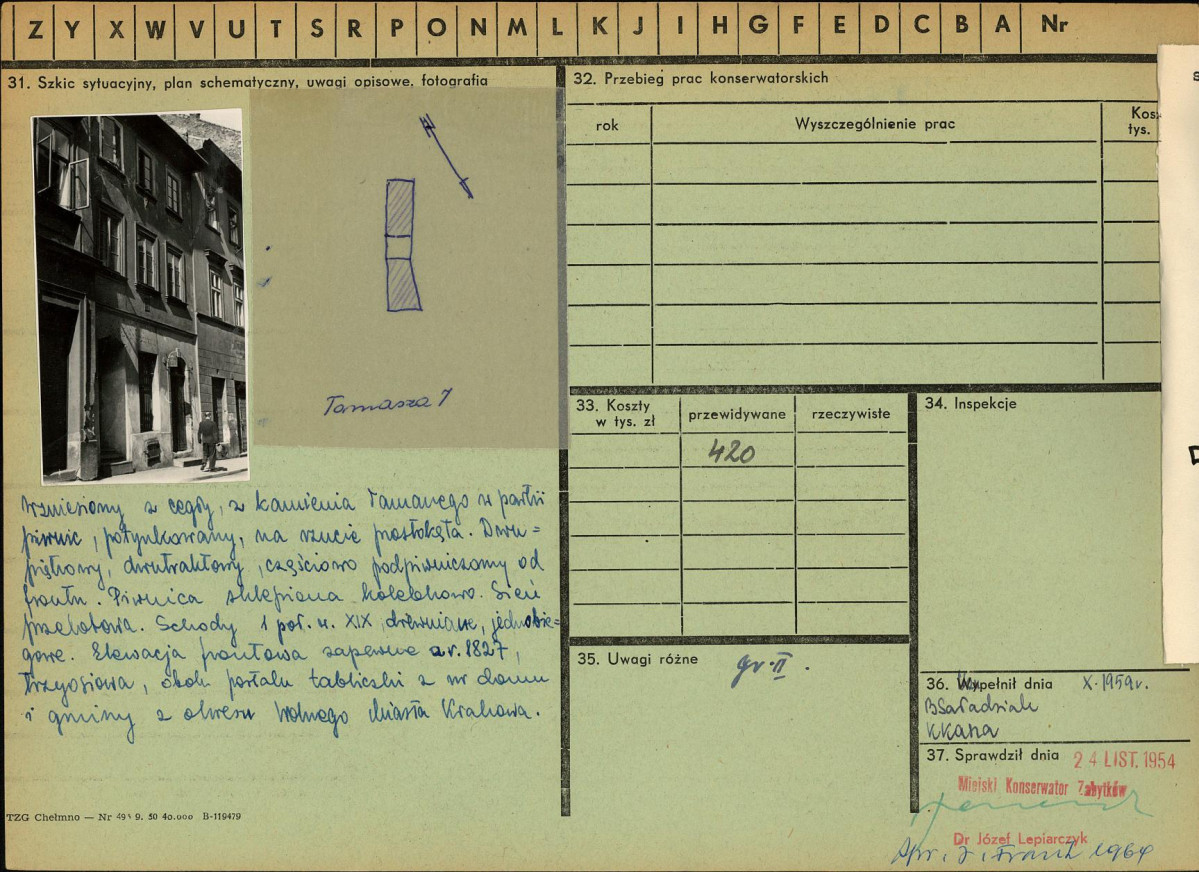 Z Y X W V U T S R P O N M L K J I H G F E D C B A Nr
31. Szkic sytuacyjny, plan schematyczny, uwagi opisowe, fotografia
Tomasza 7
Wzniesiony z cegły, z kamienia łamanego w partii
piwnic, potynkowany, na rzucie prostokąta. Dwu=
piętrowy, dwutraktowy, częściowo podpiwniczony od
frontu. Piwnica sklepiona kolebkowo. Sień
przelotowa. Schody 1 poł. w. XIX, drewniane, jednobie=
gowe. Elewacja frontowa zapewne z r. 1827,
trzyosiowa, obok portalu tabliczki z nr domu
i gminy z okresu Wolnego Miasta Krakowa.
TZG Chełmno — Nr 49 9. 50 40.000 B-119479
32. Przebieg prac konserwatorskich
rok
Wyszczególnienie prac
tys.
33. Koszty
w tys. zł
przewidywane
rzeczywiste
420
34. Inspekcje
35. Uwagi różne
gr. II.
36. Wypełnił dnia X.1959r.
37. Sprawdził dnia 24 LIST. 1954
Miejski Konserwator Zabytków
Dr Józef Lepiarczyk
1964